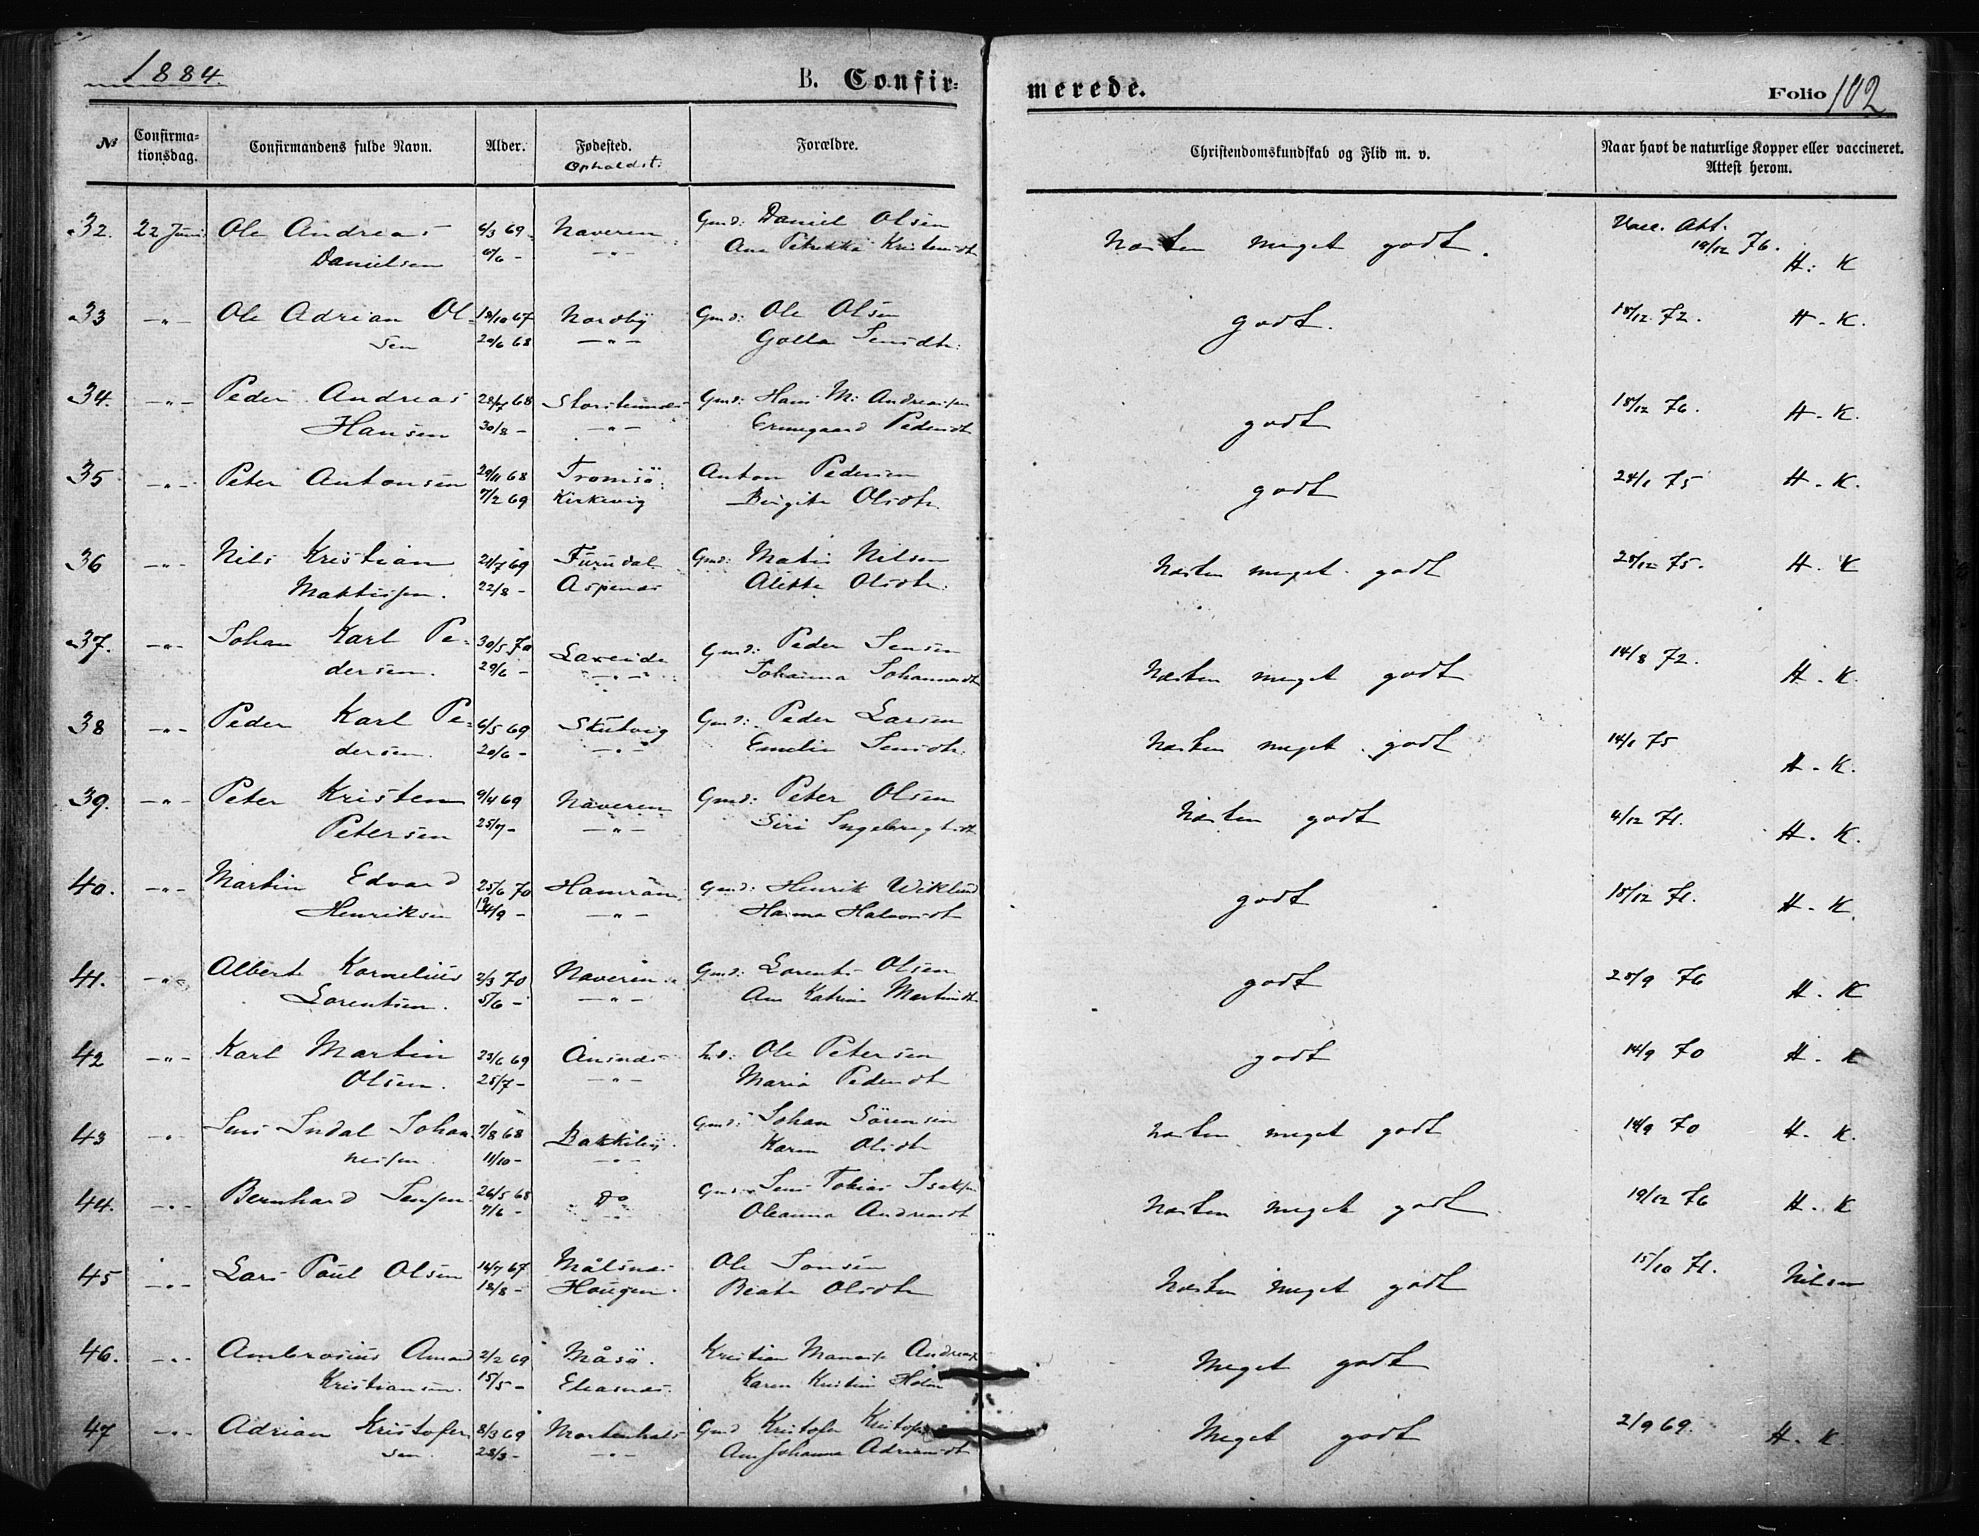 1884
B. Confir-
merede.
Folio 102
№ Confirma-tionsdag. Confirmandens fulde Navn. Alder. Fødested. Opholdst. Forældre. Christendomskundskab og Flid m. v. Naar havt de naturlige Kopper eller vaccineret. Attest herom.
32. 22 Juni Ole Andreas 69 Naveren Gmd: Daniel Olsen Næsten meget godt. Vacc. Att.
Danielsen 6/6 - -"- Ane 19/12 76. H. K
33 -"- Ole Adrian Ol- 18/10 67 Nordby Gmd: Ole Olsen godt. 18/12 72. H. K.
sen 20/6 68 -"- Golla Jensdtr.
34. -"- Peder Andreas 28/7 68 Gmd: Hans M. Andreassen godt 18/12 76. H. K.
Hansen 30/8 - -"- Ermegaard Pedersdtr
35 -"- Peter Antonsen 29/11 68 Tromsö Anton Pedersen godt 24/1 75 H. K.
7/2 69 Kirkevig Birgite Olsdtr.
36 -"- Nils Kristian 21/7 69 Furudal Gmd: Matis Nilsen Næsten meget godt 28/12 75. H. K
Mattissen. 22/8 - Aspenes Olsdtr.
37. -"- Johan Karl Pe- 30/5 70 Gmd: Peder Jensen Næsten meget godt 14/8 72. H. K.
dersen. 29/6 - -"- Johanna
38 -"- Peder Karl Pe- 6/5 69 Skutvig Gmd: Peder Larsen Næsten meget godt 14/1 75
dersen. 20/6 - -"- Emelie Jensdtr. H. K.
39. -"- Peter Kristen 9/4 69 Naveren Gmd: Peter Olsen Næsten godt 4/12 71.
Petersen 25/7 - -"- Siri Ingebrigtsdtr H. K.
40. -"- Martin Edvard 25/6 70 Gmd: Henrik Wiklund godt 18/12 71. H. K.
Henriksen -"- Hanna
41. -"- Albert Kornelius 2/3 70 Naveren Gmd: Lorents Olsen godt 28/9 76 H. K
Lorentsen. 5/6 - -"- Ane Katrine Martinsdtr
42 -"- Karl Martin 23/6 69 Ansnes Ole Petersen godt 14/9 70 H. K
Olsen. 25/7 - -"- Maria Pedersdtr
43 -"- Jens Indal Johan 7/8 68 Bakkeby Gmd: Johan Sörensen Næsten meget godt 14/9 70 H. K.
nessen. 11/10 - -"- Karen Olsdtr
44. -"- Bernhard Jensen 26/5 68 Do Gmd: Jens Tobias Isaksen Næsten meget godt 19/12 76 H. K
7/6 - Oleanna Andreasdtr
45 -"- Lars Paul Olsen 14/7 67 Målsnes Ole Jonsen Næsten meget godt 15/10 71. Nilsen
18/8 - Haugen Beate Olsdtr
46. -"- Ambrosius Amand 2/2 69 Måsö. Kristian Andreas Meget godt
Kristiansen. 15/5 - Eliasnes. Karen Kristine Holm
47 -"- Adrian Kristofer 8/3 69 Mortenhals Gmd Kristofer Kristofer Meget godt 2/9 69. H. K.
sen. 28/3 - -"- Ane Johanna Adriansdtr